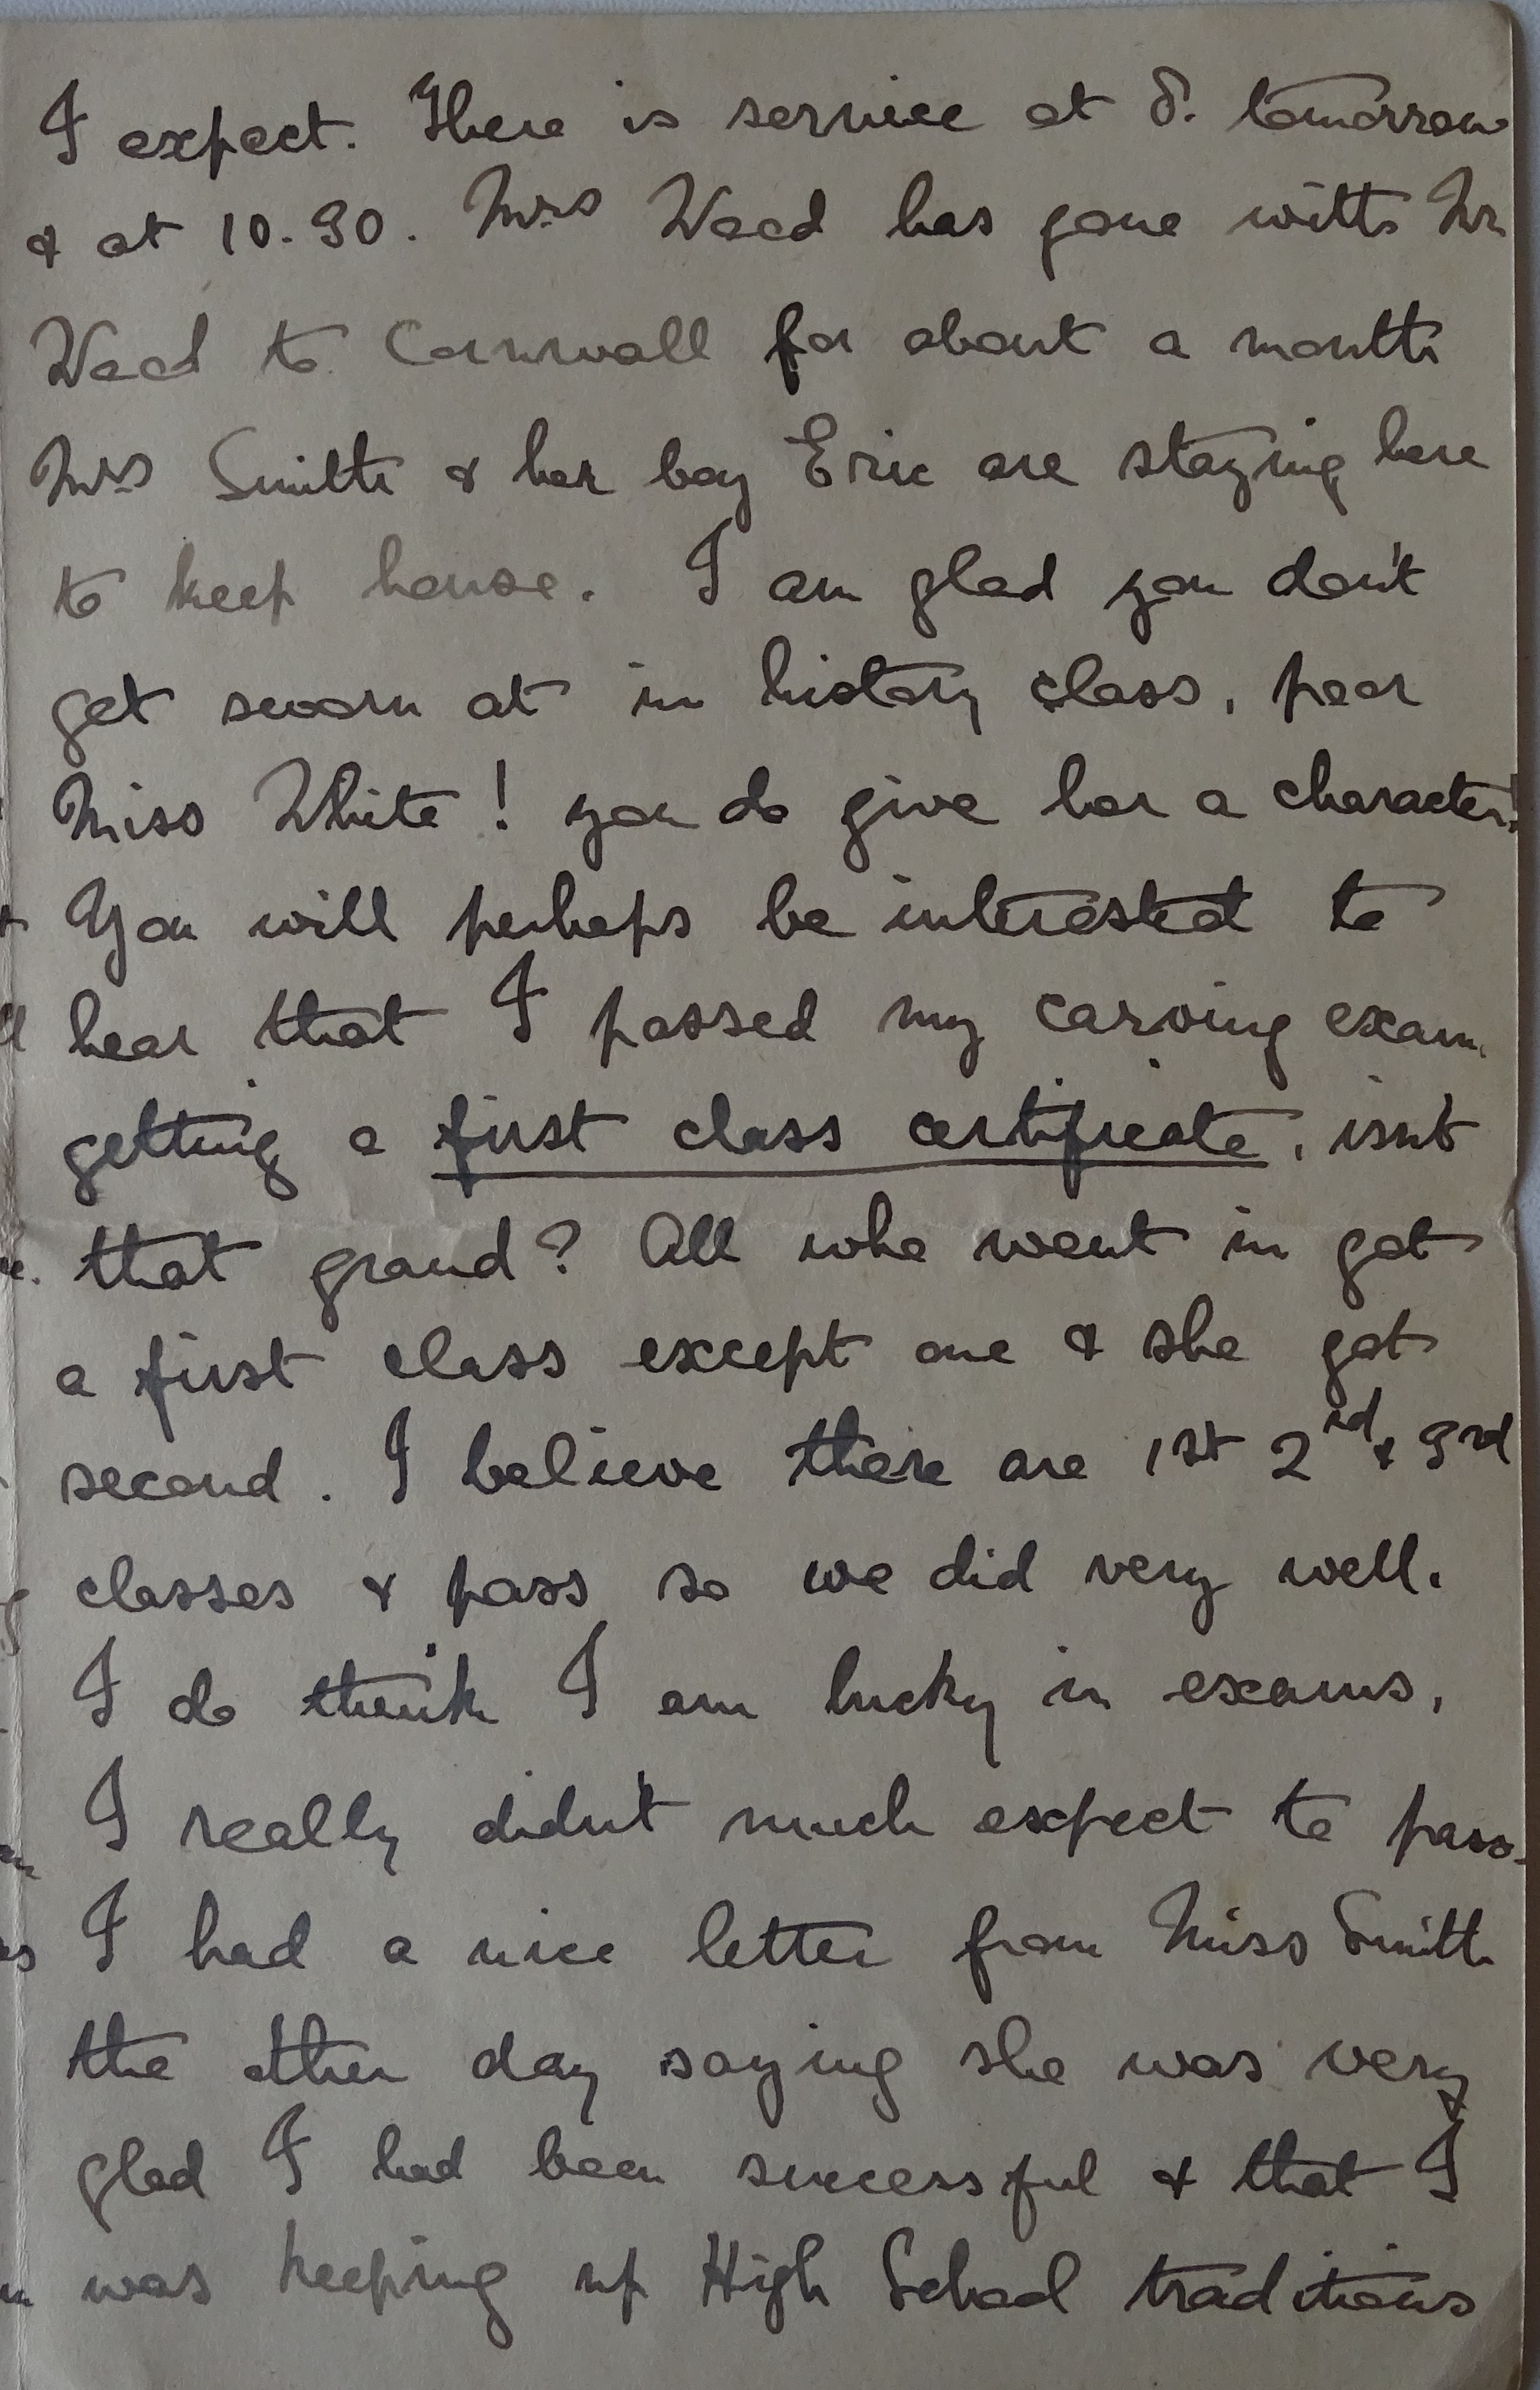 I expect. There is service at 8. tomorrow
& at 10.30. Mrs Weed has gone with Mr
Weed to Cornwall for about a month
Mrs Smith & her boy Eric are staying here
to keep house. I am glad you don't
get sworn at in history class, poor
Miss White! you do give her a character!
You will perhaps be interested to
hear that I passed my carving exam.
getting a first class certificate, isnt
that grand? All who went in got
a first class except one & she got
second. I believe there are 1st 2nd & 3rd
classes & pass so we did very well.
I do think I am lucky in exams,
I really didn't much expect to pass.
I had a nice letter from Miss Smith
the other day saying she was very
glad I had been successful & that I
was keeping up High School traditions